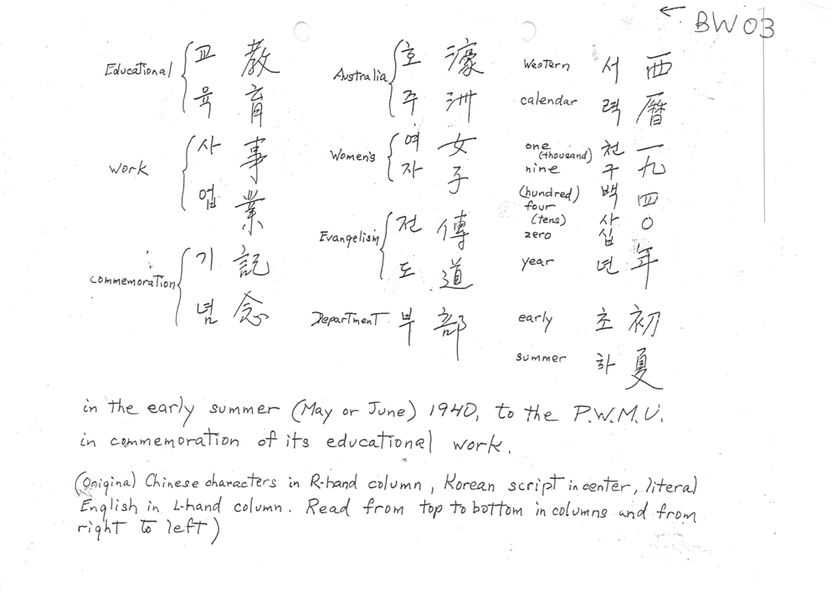 ← BW03
Western 서 西
calendar 력 曆
one (thousand) 천 一
nine (hundred) 구 백 九
four (tens) 사 십 四
zero 〇
year 년 年
early 초 初
summer 하 夏
Australia 호 濠
주 洲
Women's 여 女
자 子
Evangelism 전 傳
도 道
Department 부 部
Educational 교 教
육 育
work 사 事
업 業
commemoration 기 記
념 念
in the early summer (May or June) 1940, to the P.W.M.U.
in commemoration of its educational work.
(Original Chinese characters in R-hand column, Korean script in center, literal
English in L-hand column. Read from top to bottom in columns and from
right to left)